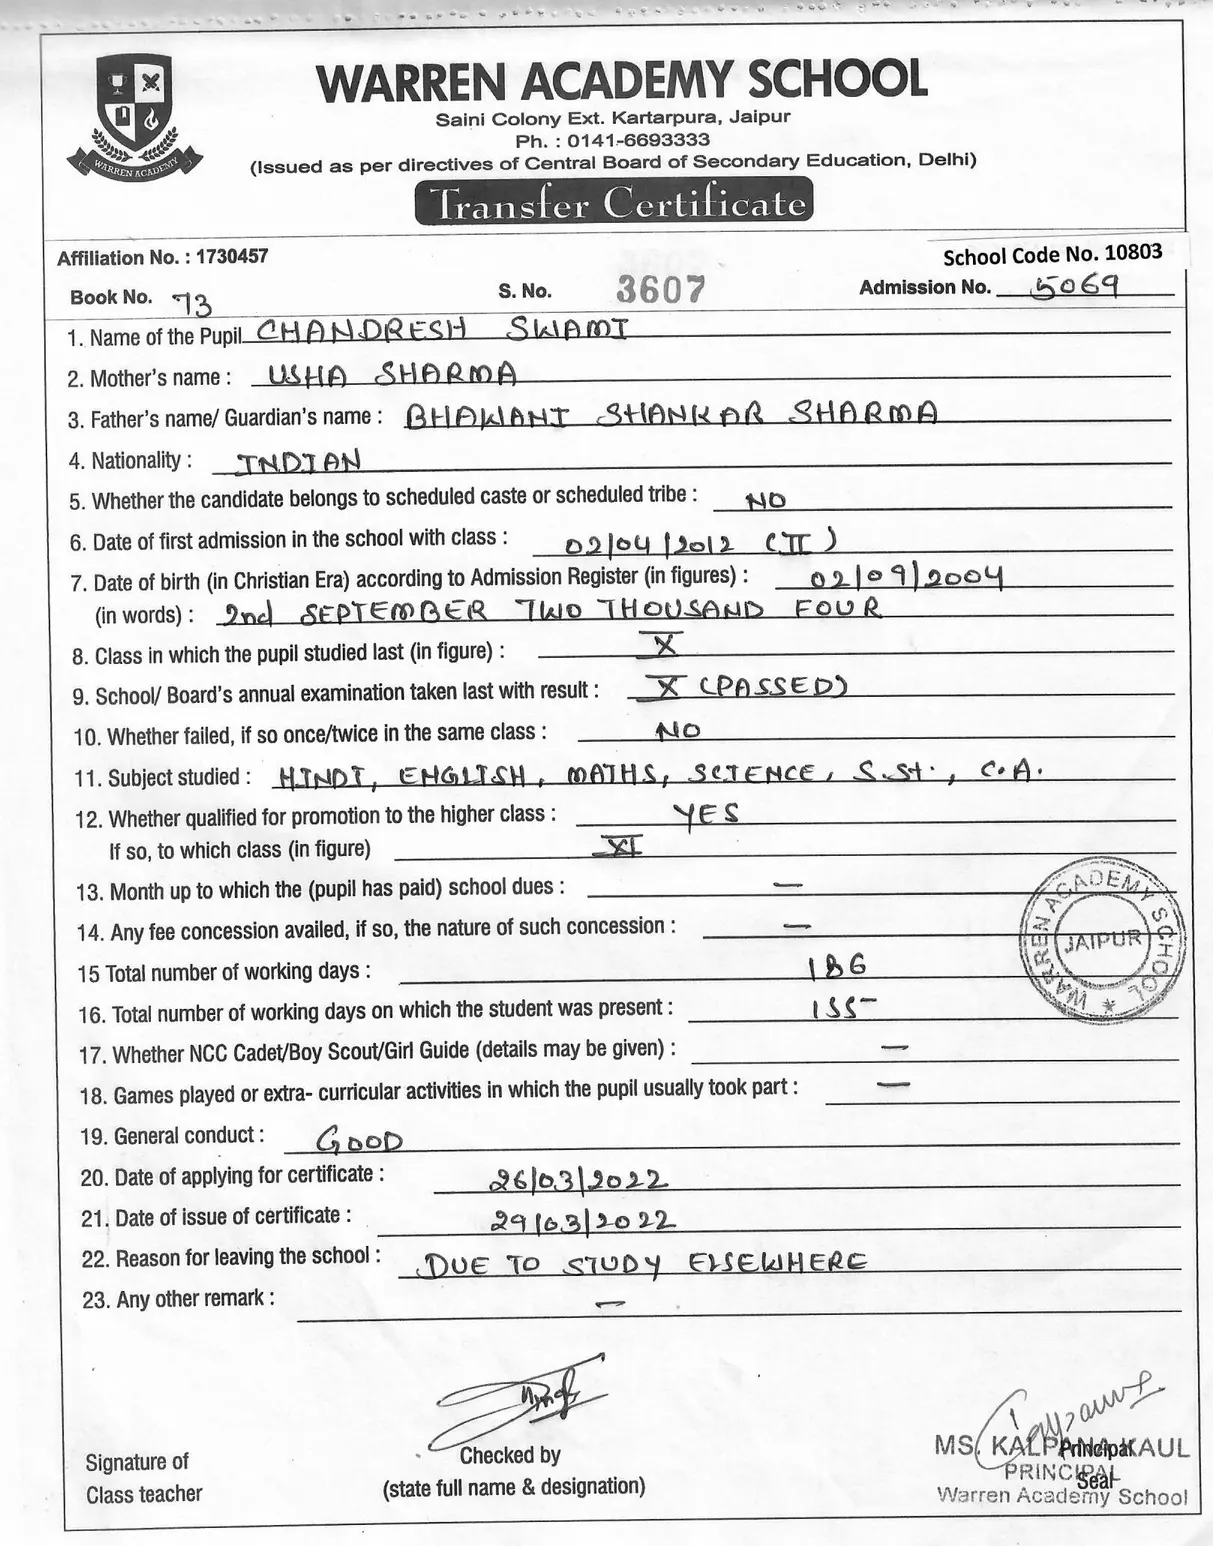 WARREN ACADEMY
WARREN ACADEMY SCHOOL
Saini Colony Ext. Kartarpura, Jaipur
Ph. : 0141-6693333
(Issued as per directives of Central Board of Secondary Education, Delhi)
Transfer Certificate
Affiliation No. : 1730457 School Code No. 10803
Book No. 73 S. No. 3607 Admission No. 5069
1. Name of the Pupil CHANDRESH SWAMI
2. Mother's name : USHA SHARMA
3. Father's name/ Guardian's name : BHAWANI SHANKAR SHARMA
4. Nationality : INDIAN
5. Whether the candidate belongs to scheduled caste or scheduled tribe : NO
6. Date of first admission in the school with class : 02/04/2012 (II)
7. Date of birth (in Christian Era) according to Admission Register (in figures) : 02/09/2004
(in words) : 2nd SEPTEMBER TWO THOUSAND FOUR
8. Class in which the pupil studied last (in figure) : X
9. School/ Board's annual examination taken last with result : X (PASSED)
10. Whether failed, if so once/twice in the same class : NO
11. Subject studied : HINDI, ENGLISH, MATHS, SCIENCE, S.St., C.A.
12. Whether qualified for promotion to the higher class : YES
If so, to which class (in figure) XI
13. Month up to which the (pupil has paid) school dues : —
14. Any fee concession availed, if so, the nature of such concession : —
15 Total number of working days : 186
16. Total number of working days on which the student was present : 155
WARREN ACADEMY SCHOOL * JAIPUR
17. Whether NCC Cadet/Boy Scout/Girl Guide (details may be given) : —
18. Games played or extra- curricular activities in which the pupil usually took part : —
19. General conduct : GOOD
20. Date of applying for certificate : 26/03/2022
21. Date of issue of certificate : 29/03/2022
22. Reason for leaving the school : DUE TO STUDY ELSEWHERE
23. Any other remark : —
Signature of
Class teacher
Checked by
(state full name & designation)
MS. KALPANA KAUL
Principal
PRINCIPAL
Seal
Warren Academy School